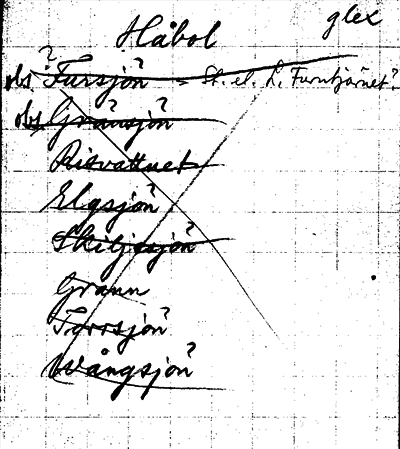 glex
Håbol
obs ? Fursjön = St. el. L. Furutjärnet?
obs Gransjön ?
Risvattnet
Elgsjön ?
Skiljesjön ?
Grann
Torrsjön ?
Wångsjön ?